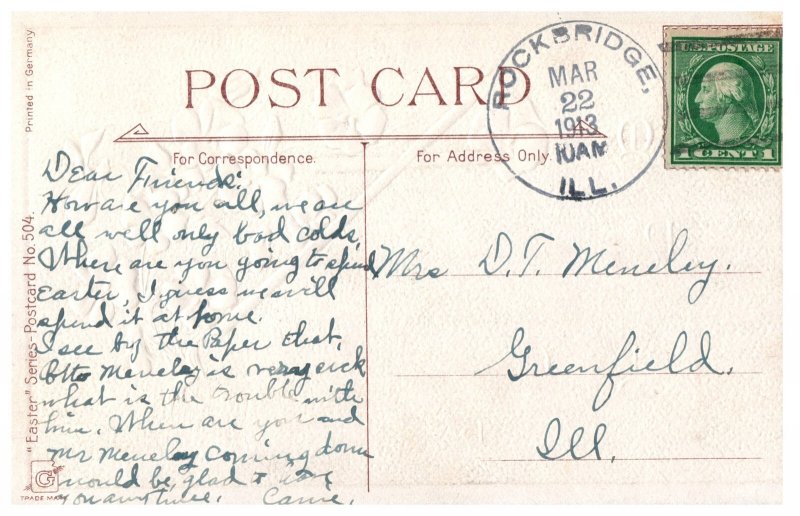 POST CARD
ROCKBRIDGE,
MAR
22
1913
10AM
ILL.
U.S. POSTAGE
1 CENT 1
For Correspondence.
For Address Only.
Printed in Germany
"Easter" Series-Postcard No. 504.
G
TRADE MARK
Dear Friends:
How are you all, we are
all well only bad colds,
Where are you going to spend
Easter, I guess we will
spend it at home.
I see by the Paper that,
Otto Meneley is very sick
what is the trouble with
him. When are you and
Mr Meneley coming down
would be glad to
you anytime. Carrie.
Mrs D.T. Meneley.
Greenfield.
Ill.